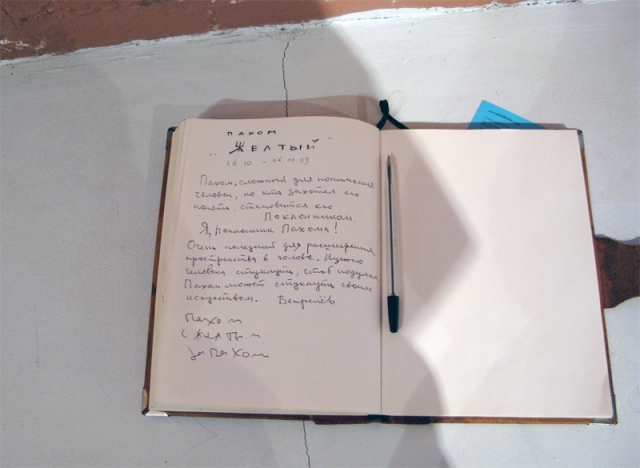 ПАХОМ
"ЖЕЛТЫЙ"
16.10 - 16.11.09
Пахом, сложный для понимания
человек, но кто захотел его
понять, становится его
Поклонником.
Я, поклонник Пахома!
Очень полезный для расширения
пространства в голове. Нужно
человека стукнуть, чтоб подумал
Пахом может стукнуть своим
искусством.
Пахом
с желтым
запахом